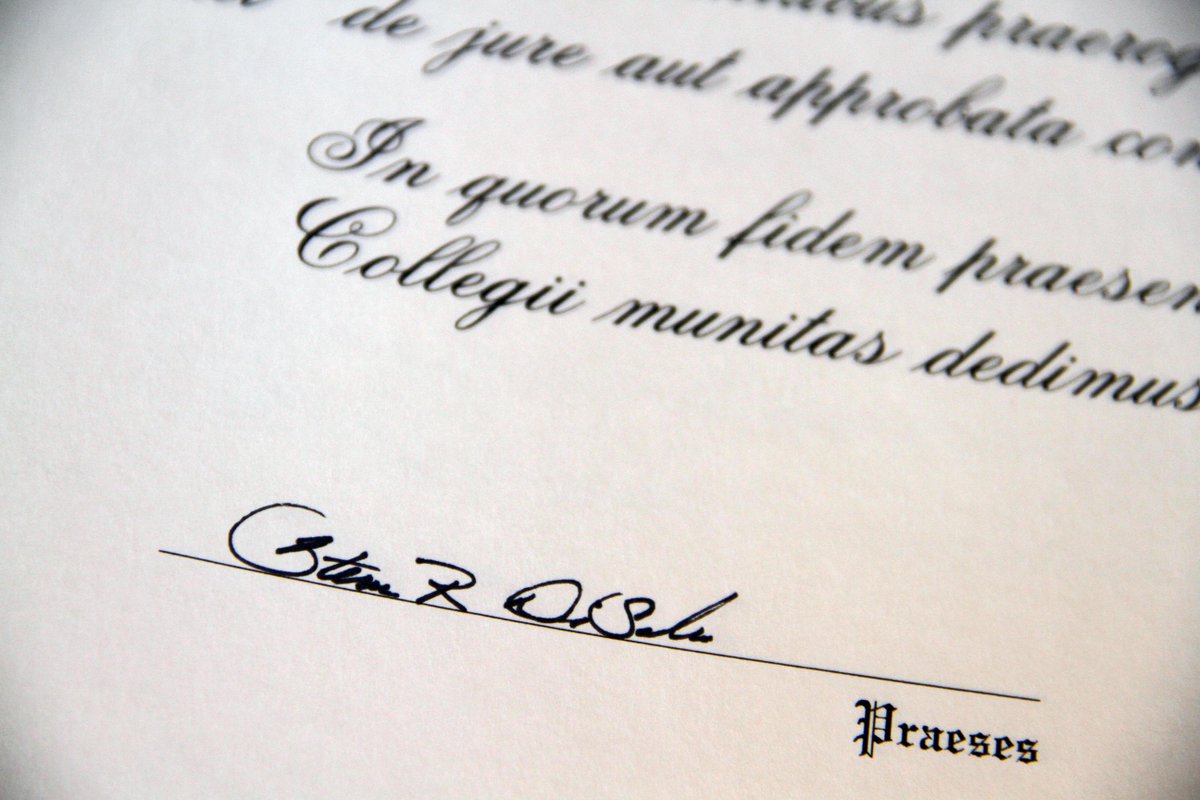 praerog
de jure aut approbata con
In quorum fidem praesen
Collegii munitas dedimus
Steven R DiSalvo
Praeses